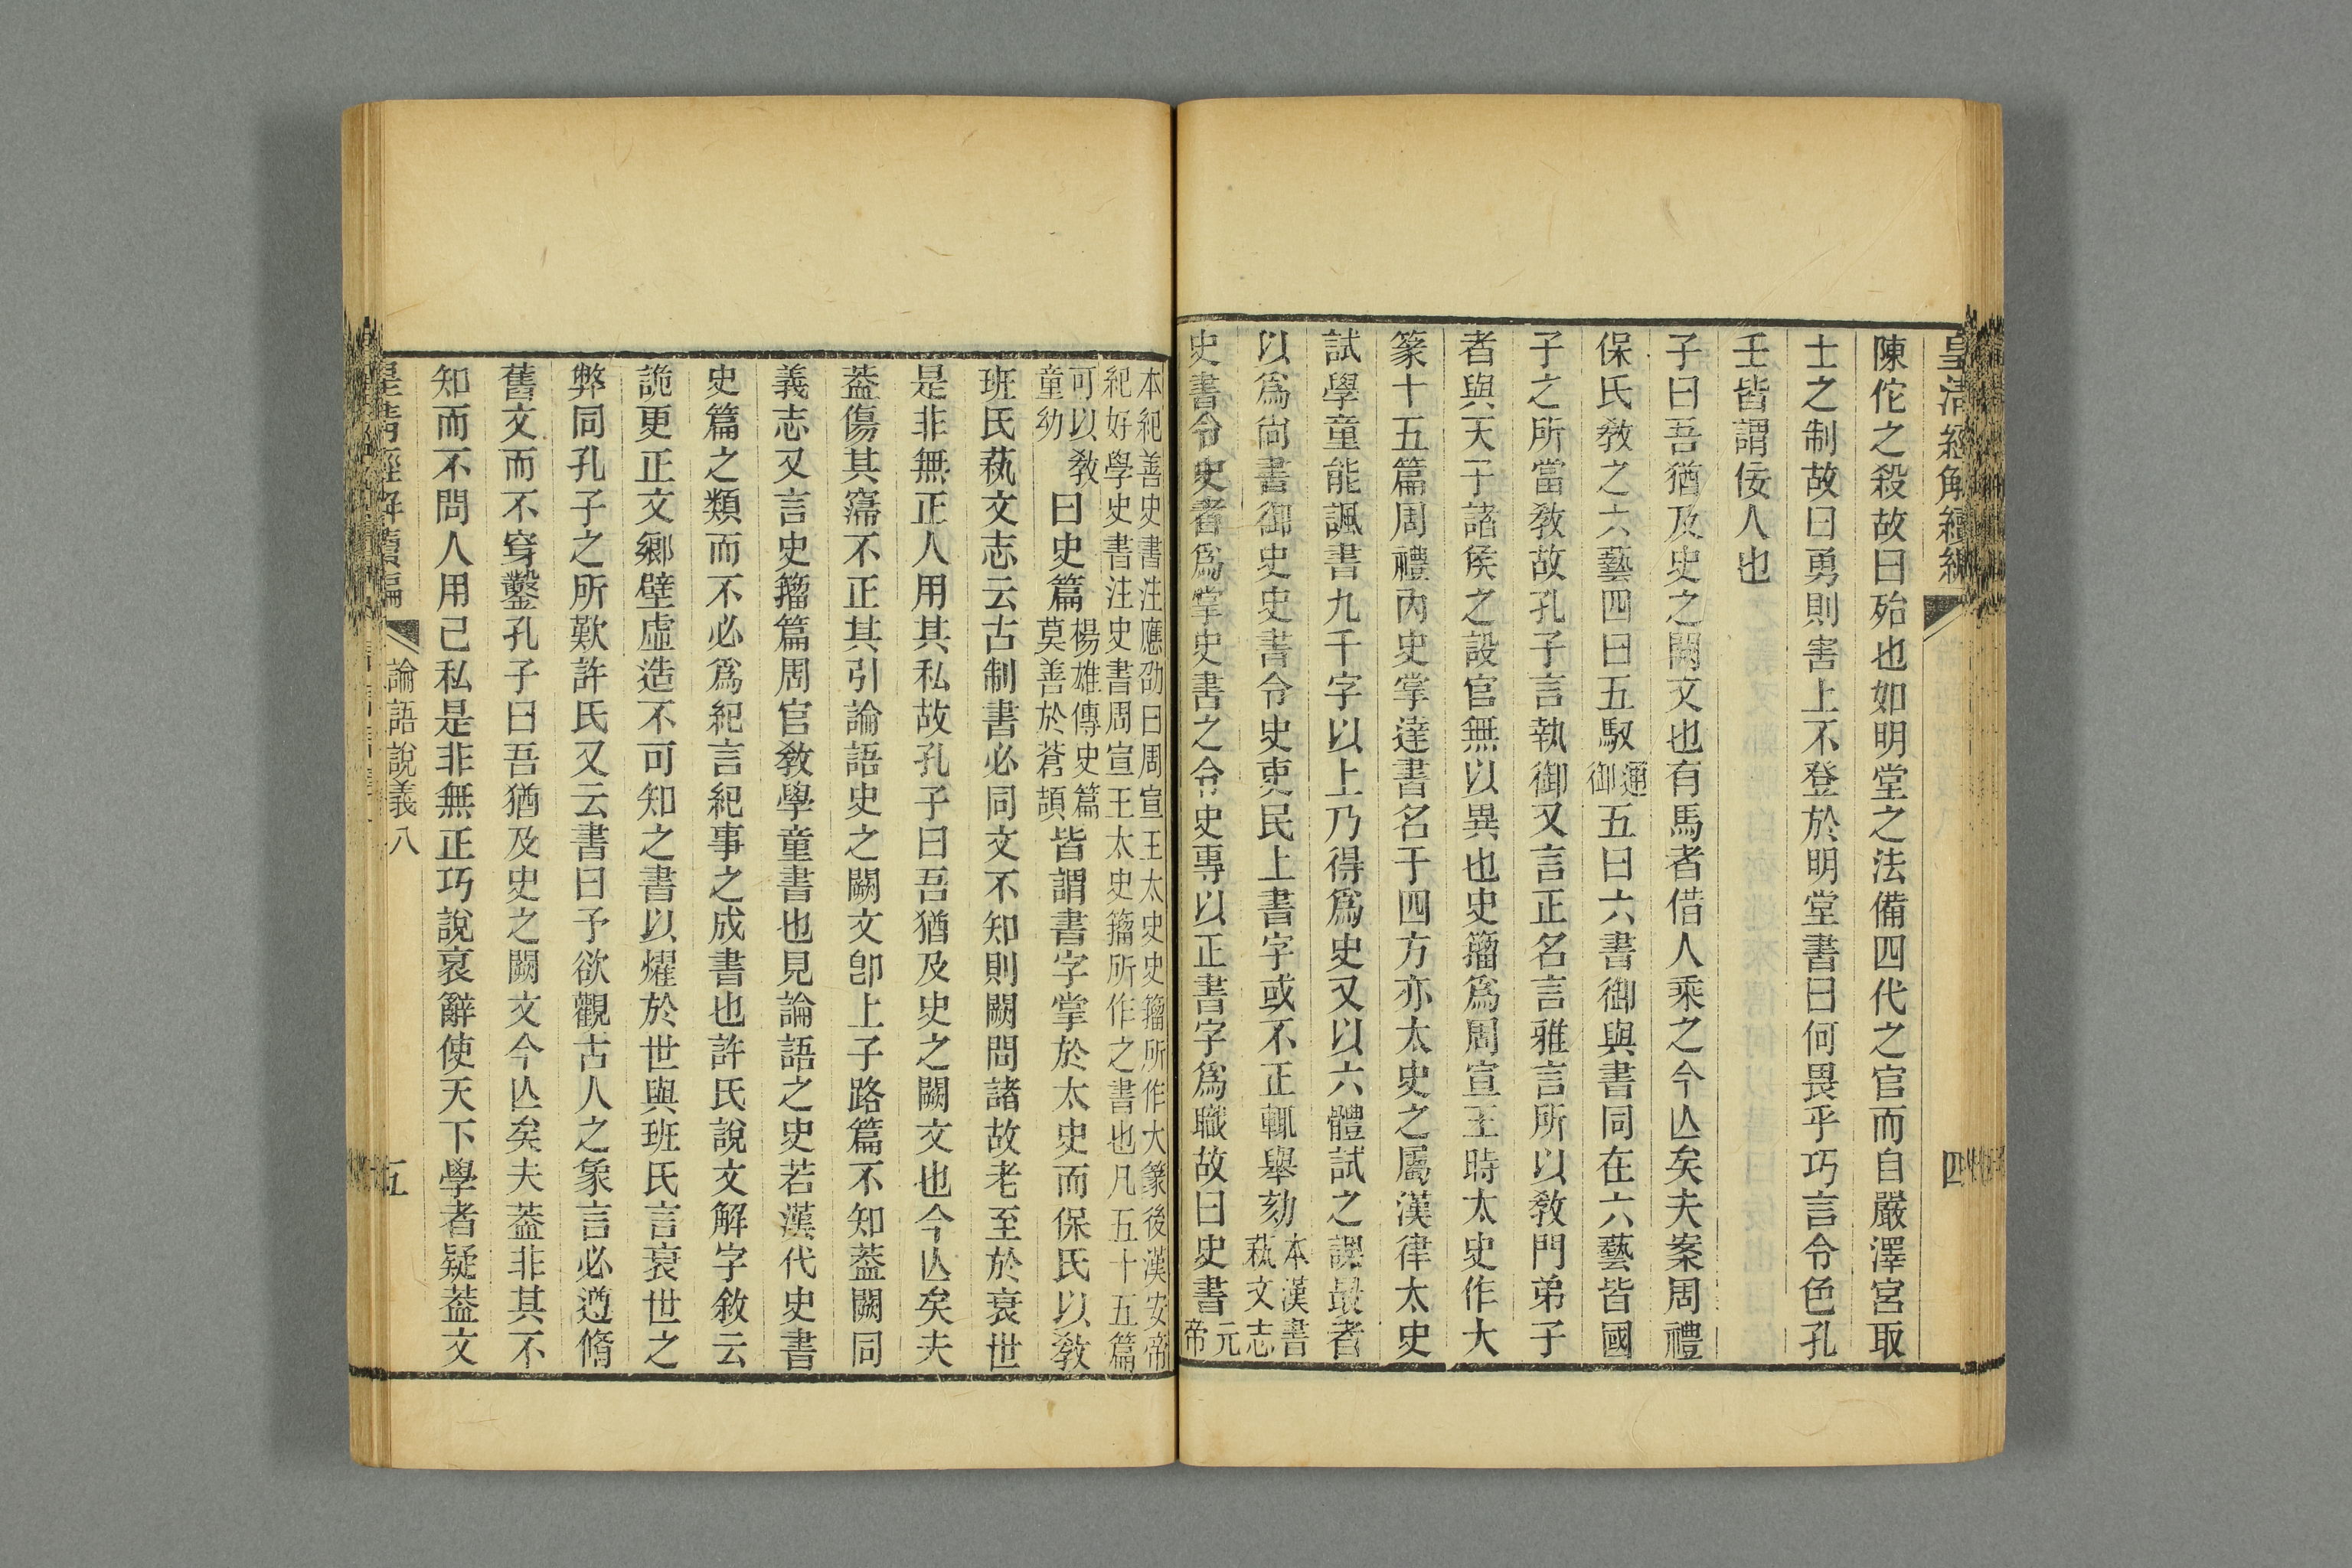 皇清經解續編
四
陳佗之殺故曰殆也如明堂之法備四代之官而自嚴澤宮取
士之制故曰勇則害上不登於明堂書曰何畏乎巧言令色孔
壬皆謂佞人也
子曰吾猶及史之闕文也有馬者借人乘之今亾矣夫案周禮
保氏敎之六藝四曰五馭通御五曰六書御與書同在六藝皆國
子之所當敎故孔子言執御又言正名言雅言所以敎門弟子
者與天子諸侯之設官無以異也史籒爲周宣王時太史作大
篆十五篇周禮內史掌達書名于四方亦太史之屬漢律太史
試學童能諷書九千字以上乃得爲史又以六體試之課最者
以爲尙書御史史書令史吏民上書字或不正輒舉劾本漢書萟文志
史書令史者爲掌史書之令史專以正書字爲職故曰史書元帝
本紀善史書注應劭曰周宣王太史史籒所作大篆後漢安帝
紀好學史書注史書周宣王太史籒所作之書也凡五十五篇
可以敎童幼曰史篇楊雄傳史篇莫善於蒼頡皆謂書字掌於太史而保氏以敎
班氏萟文志云古制書必同文不知則闕問諸故老至於衰世
是非無正人用其私故孔子曰吾猶及史之闕文也今亾矣夫
葢傷其寖不正其引論語史之闕文卽上子路篇不知葢闕同
義志又言史籒篇周官敎學童書也見論語之史若漢代史書
史篇之類而不必爲紀言紀事之成書也許氏說文解字敘云
詭更正文鄉壁虛造不可知之書以燿於世與班氏言衰世之
弊同孔子之所歎許氏又云書曰予欲觀古人之象言必遵脩
舊文而不穿鑿孔子曰吾猶及史之闕文今亾矣夫葢非其不
知而不問人用己私是非無正巧說衺辭使天下學者疑葢文
皇淸經解續編
論語說義八
五